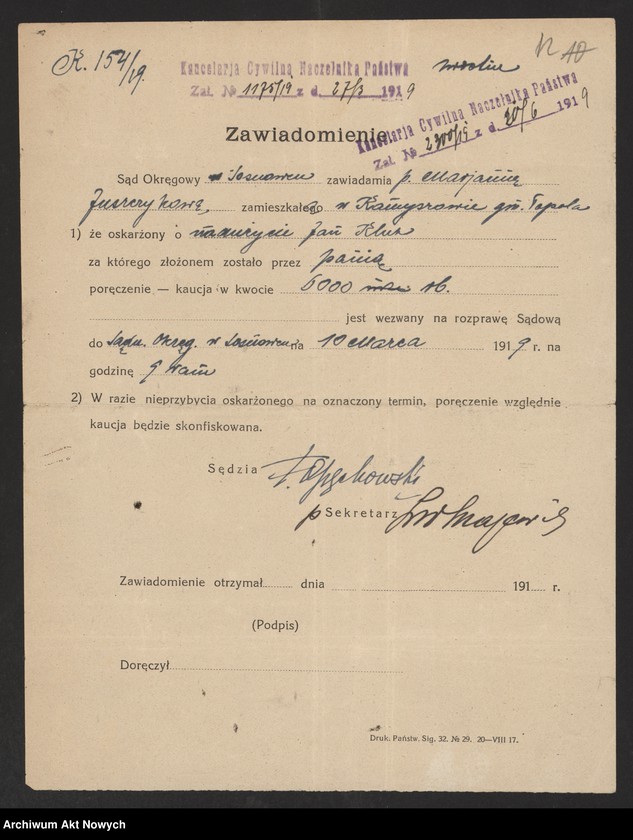 K. 154/19.
Kancelarja Cywilna Naczelnika Państwa
Zał. № 1175/19 z d. 27/3 1919
Kancelarja Cywilna Naczelnika Państwa
Zał. № 2300/19 z d. 20/6 1919
Zawiadomienie
Sąd Okręgowy w Sosnowcu zawiadamia p. Marjannę
Juszczykową, zamieszkałego w gm.
1) że oskarżony o nadużycie Jan
za którego złożonem zostało przez panią
poręczenie — kaucja w kwocie 5000 rb.
jest wezwany na rozprawę Sądową
do Sądu Okręg. w Sosnowcu na 10 Marca 1919 r. na
godzinę 9 rano
2) W razie nieprzybycia oskarżonego na oznaczony termin, poręczenie względnie
kaucja będzie skonfiskowana.
Sędzia
p Sekretarz
Zawiadomienie otrzymał dnia 191 r.
(Podpis)
Doręczył
Druk. Państw. Sig. 32. № 29. 20—VIII 17.
Archiwum Akt Nowych